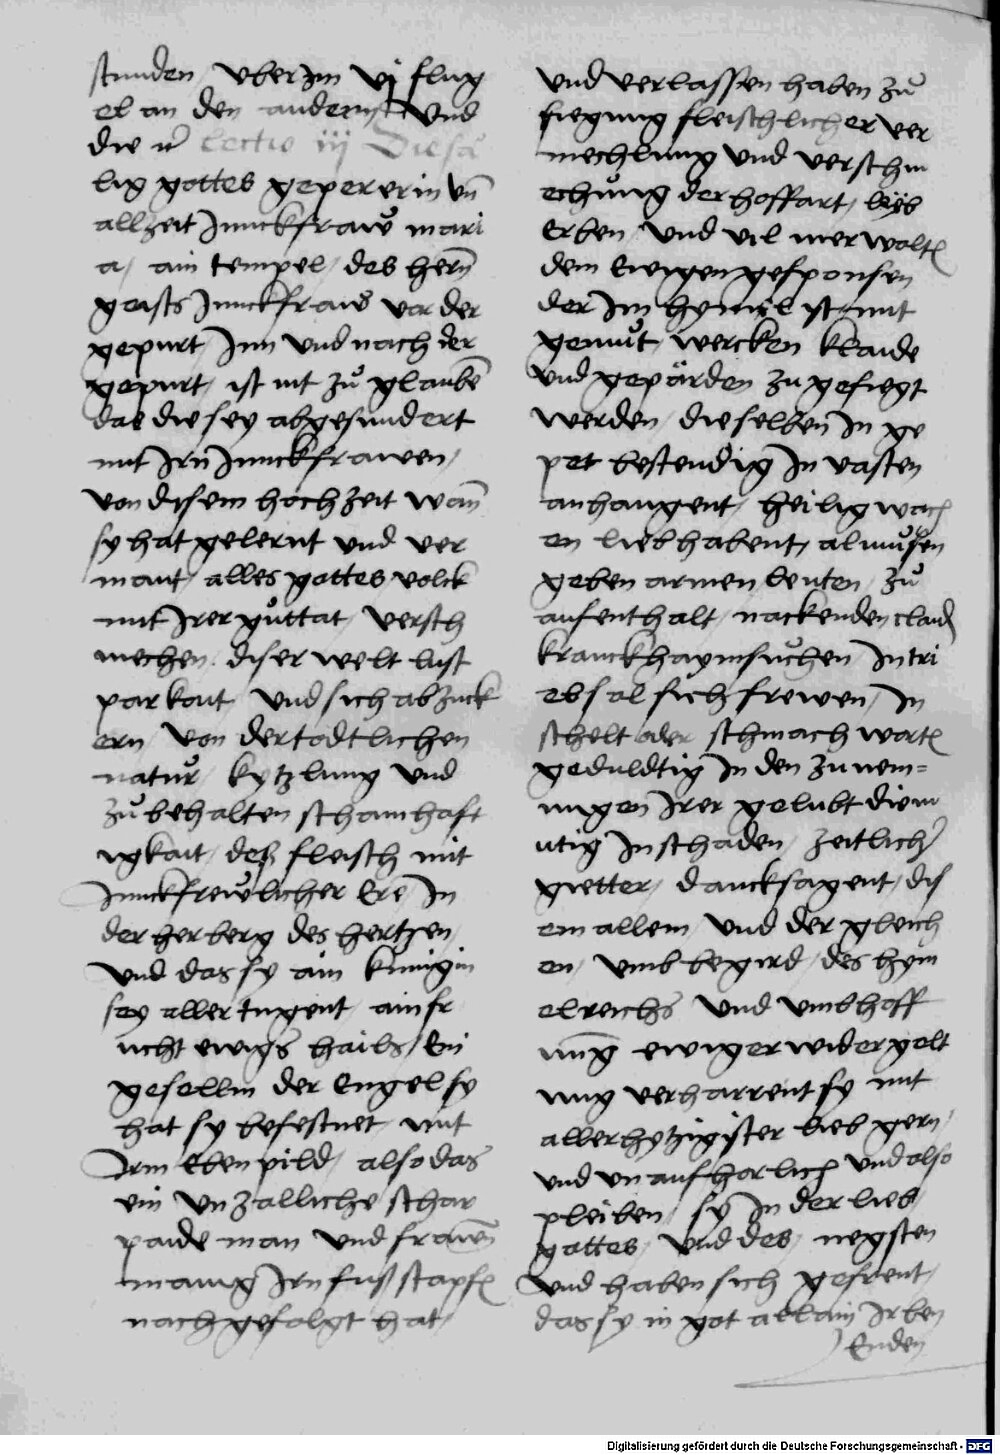 stunden / vber Im vj flug
el an den andern / Vnd
die u͛ lectio iij Die sä
lig gottes gepererin vn̄
allzeit Junckfraw mari
a / ain tempel / des hern̄
geists Junckfraw vor der
gepurt / Inn vnd nach der
gepurt / ist nit zu̇ glaubē
das die sey abgesundert
mit Irn̄ Junckfrawen /
von disem hochzeit wan̄
sy hat gelernt vnd ver
mant / alles gottes / volck
mit Irer gu̇ttat / versch
mechen / diser welt lust
parkait / vnd sich abzuck
ern / von der todtlichen
natur / kytzlung vnd
zu̇ behalten schamhaft
igkait / deß fleisch mit
Junckfrewlicher Ere / In
der herberg des hertzen /
vnd das sy ain kunigin
sey aller tugent / ain fr
ucht ewigs hails / Ein
gesellin der Engel sy
hat sy befestnet / mit
Irm Ebenpild / also das
ein vnzalliche schar
paide man vnd frawn̄
manig Irn fußstapfn̄
nachgefolgt hat /
vnd verlassen haben zu̇
fiegung fleischlicher ver
mechlung vnd verschm
echung der hoffart / leyb
Erben / vnd vil mer woltn̄
dem Ewigen gesponsen
der Im hymel ist / mit
gemu̇t / wercken klaide
vnd gepärden zu gefiegt
werden / dieselben In ge
pet bestendig In vasten
anhangent / heilig wach
en liebhabent / almusen
geben armen leuten / zu̇
aufenthalt / nackenden claid
kranckhaym su̇chen / In tri
ebsal sich frewen / In
schelt oder schmach wortn̄
geduldtig In den zu nem=
ungen Irer gelubt diem
utig In schaden / zeitlicher
gietter / dancksagent / dis
em allem / vnd der gleich
en / vmb begird / des hym
elreichs vnd vmb hoff
ung ewiger widergelt
ung verharrent sy mit
allerhytzigister lieb gern /
vnd vnaufhorlich vnd also
pleiben / sy In der lieb
gottes / vnd des / negsten
vnd haben sich gefreut /
das sy in got allain Ir ben
Enden
Digitalisierung gefördert durch die Deutsche Forschungsgemeinschaft - DFG